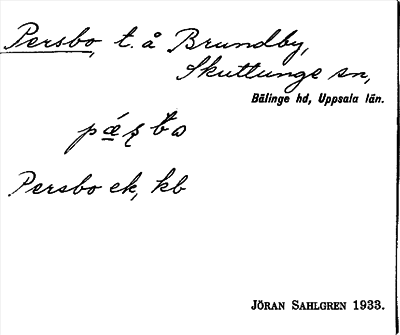 Persbo, t. å Brundby,
Skuttunge sn,
Bälinge hd, Uppsala län.
Persbo ek, kb
JÖRAN SAHLGREN 1933.